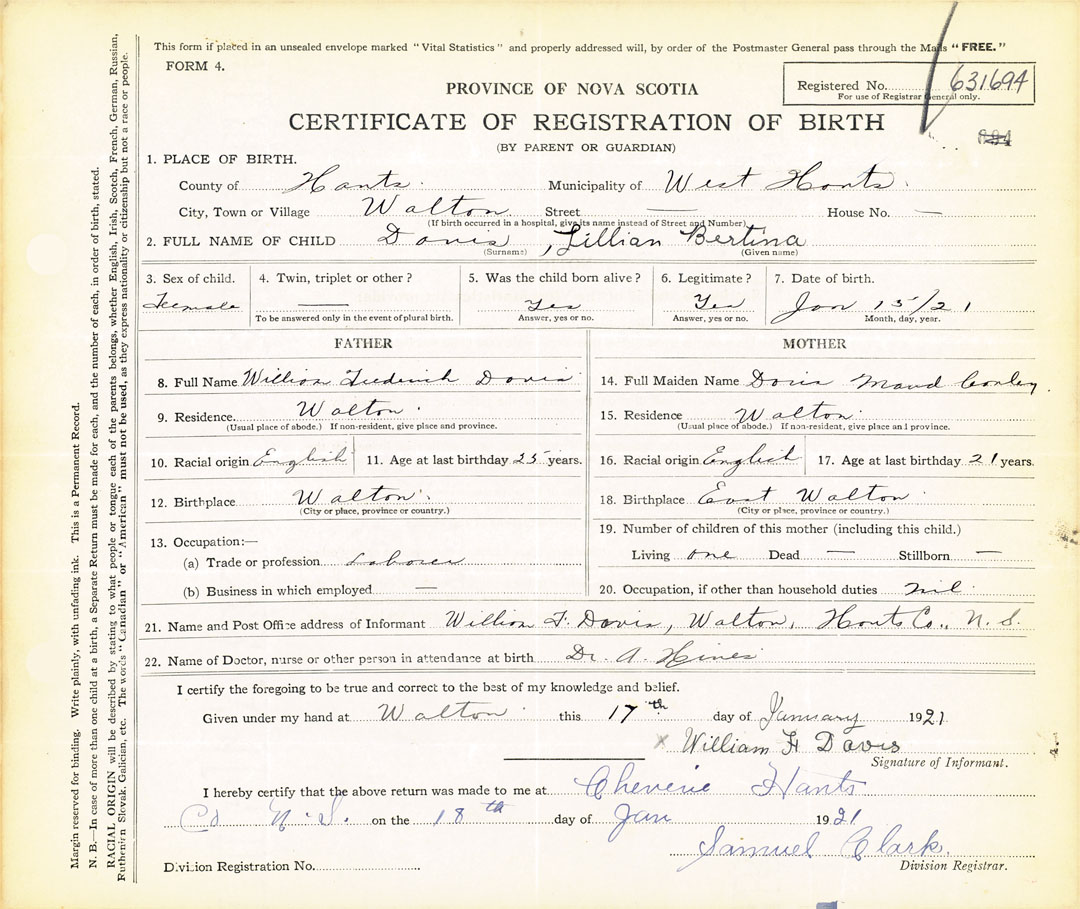 This form if placed in an unsealed envelope marked "Vital Statistics" and properly addressed will, by order of the Postmaster General pass through the Mails "FREE."
FORM 4.
Registered No. 631694
For use of Registrar General only.
PROVINCE OF NOVA SCOTIA
CERTIFICATE OF REGISTRATION OF BIRTH
(BY PARENT OR GUARDIAN)
1. PLACE OF BIRTH.
County of Hants. Municipality of West Hants.
City, Town or Village Walton Street — House No. —
(If birth occurred in a hospital, give its name instead of Street and Number)
2. FULL NAME OF CHILD Davis, Lillian Bertina
(Surname) (Given name)
3. Sex of child. 4. Twin, triplet or other? 5. Was the child born alive? 6. Legitimate? 7. Date of birth.
Female — Yes Yes Jan 15/21
To be answered only in the event of plural birth. Answer, yes or no. Answer, yes or no. Month, day, year.
FATHER
8. Full Name William Frederick Davis
9. Residence Walton.
(Usual place of abode.) If non-resident, give place and province.
10. Racial origin English 11. Age at last birthday 25 years.
12. Birthplace Walton.
(City or place, province or country.)
13. Occupation:—
(a) Trade or profession Laborer
(b) Business in which employed —
MOTHER
14. Full Maiden Name Doris Maud Conley
15. Residence Walton.
(Usual place of abode.) If non-resident, give place and province.
16. Racial origin English 17. Age at last birthday 21 years.
18. Birthplace East Walton
(City or place, province or country.)
19. Number of children of this mother (including this child.)
Living one Dead — Stillborn —
20. Occupation, if other than household duties nil
21. Name and Post Office address of Informant William F. Davis, Walton, Hants Co., N.S.
22. Name of Doctor, nurse or other person in attendance at birth Dr. A. Hines
I certify the foregoing to be true and correct to the best of my knowledge and belief.
Given under my hand at Walton this 17th day of January 1921
x William F Davis
Signature of Informant.
I hereby certify that the above return was made to me at Cheverie Hants
Co N.S. on the 18th day of Jan 1921
Samuel Clark.
Division Registrar.
Division Registration No.
Margin reserved for binding. Write plainly, with unfading ink. This is a Permanent Record.
N. B.—In case of more than one child at a birth, a Separate Return must be made for each, and the number of each, in order of birth, stated.
RACIAL ORIGIN will be described by stating to what people or tongue each of the parents belongs, whether English, Irish, Scotch, French, German, Russian,
Ruthenian Slovak, Galician, etc. The words "Canadian" or "American" must not be used, as they express nationality or citizenship but not a race or people.